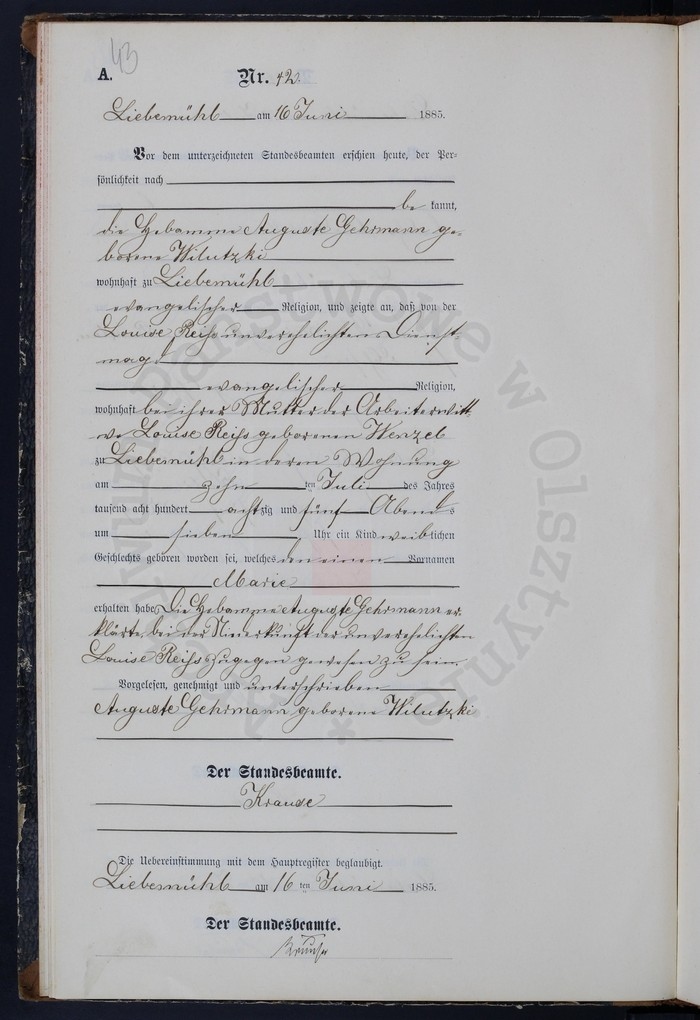 43
A. Nr. 42.
Liebemühl am 16 Juni 1885.
Vor dem unterzeichneten Standesbeamten erschien heute, der Per-
sönlichkeit nach
be kannt,
die Hebamme Auguste Gehrmann ge-
borene Wilutzki
wohnhaft zu Liebemühl
evangelischer Religion, und zeigte an, daß von der
Louise Reiss unverehelichten Dienst-
magd
evangelischer Religion,
wohnhaft bei ihrer Mutter der Arbeiterwitt-
we Louise Reiss geborenen Wenzel
zu Liebemühl in deren Wohnung
am zehn ten Juli des Jahres
tausend acht hundert achtzig und fünf Abends
um sieben Uhr ein Kind weiblichen
Geschlechts geboren worden sei, welches den einen Vornamen
Marie
erhalten habe. Die Hebamme Auguste Gehrmann er-
klärte, bei der Niederkunft der unverehelichten
Louise Reiss zugegen gewesen zu sein.
Vorgelesen, genehmigt und unterschrieben
Auguste Gehrmann geborene Wilutzki
Der Standesbeamte.
Krause
Die Uebereinstimmung mit dem Hauptregister beglaubigt.
Liebemühl am 16 ten Juni 1885.
Der Standesbeamte.
Krause